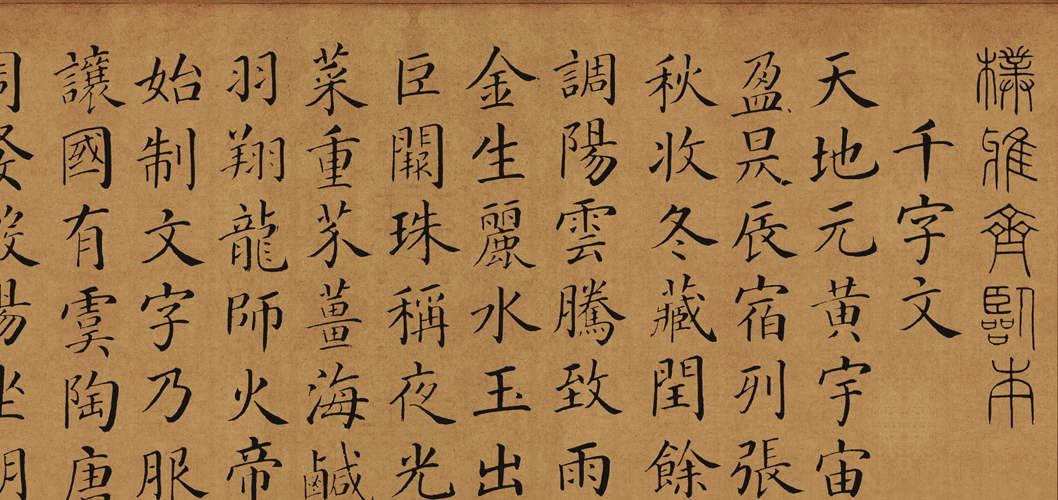 樸雅齋臨本
千字文
天地元黄宇宙
盈昃辰宿列張
秋收冬藏閏餘
調陽雲騰致雨
金生麗水玉出
巨闕珠稱夜光
菜重芥薑海鹹
羽翔龍師火帝
始制文字乃服
讓國有虞陶唐
周發殷湯坐朝